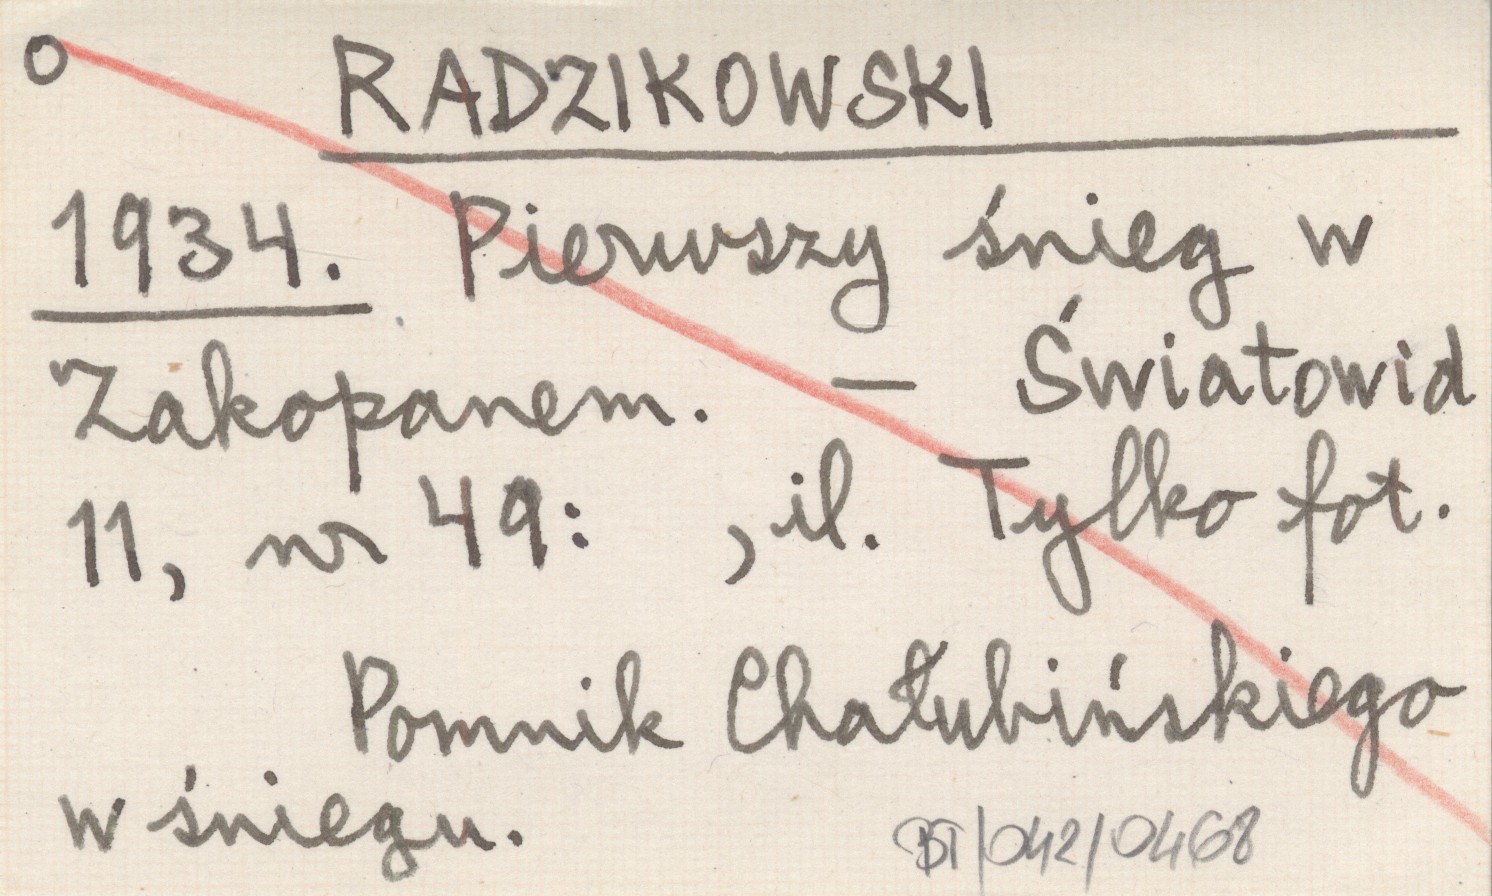 O RADZIKOWSKI
1934. Pierwszy śnieg w
Zakopanem. — Światowid
11, nr 49: , il. Tylko fot.
Pomnik Chałubińskiego
w śniegu.
BT/042/0468